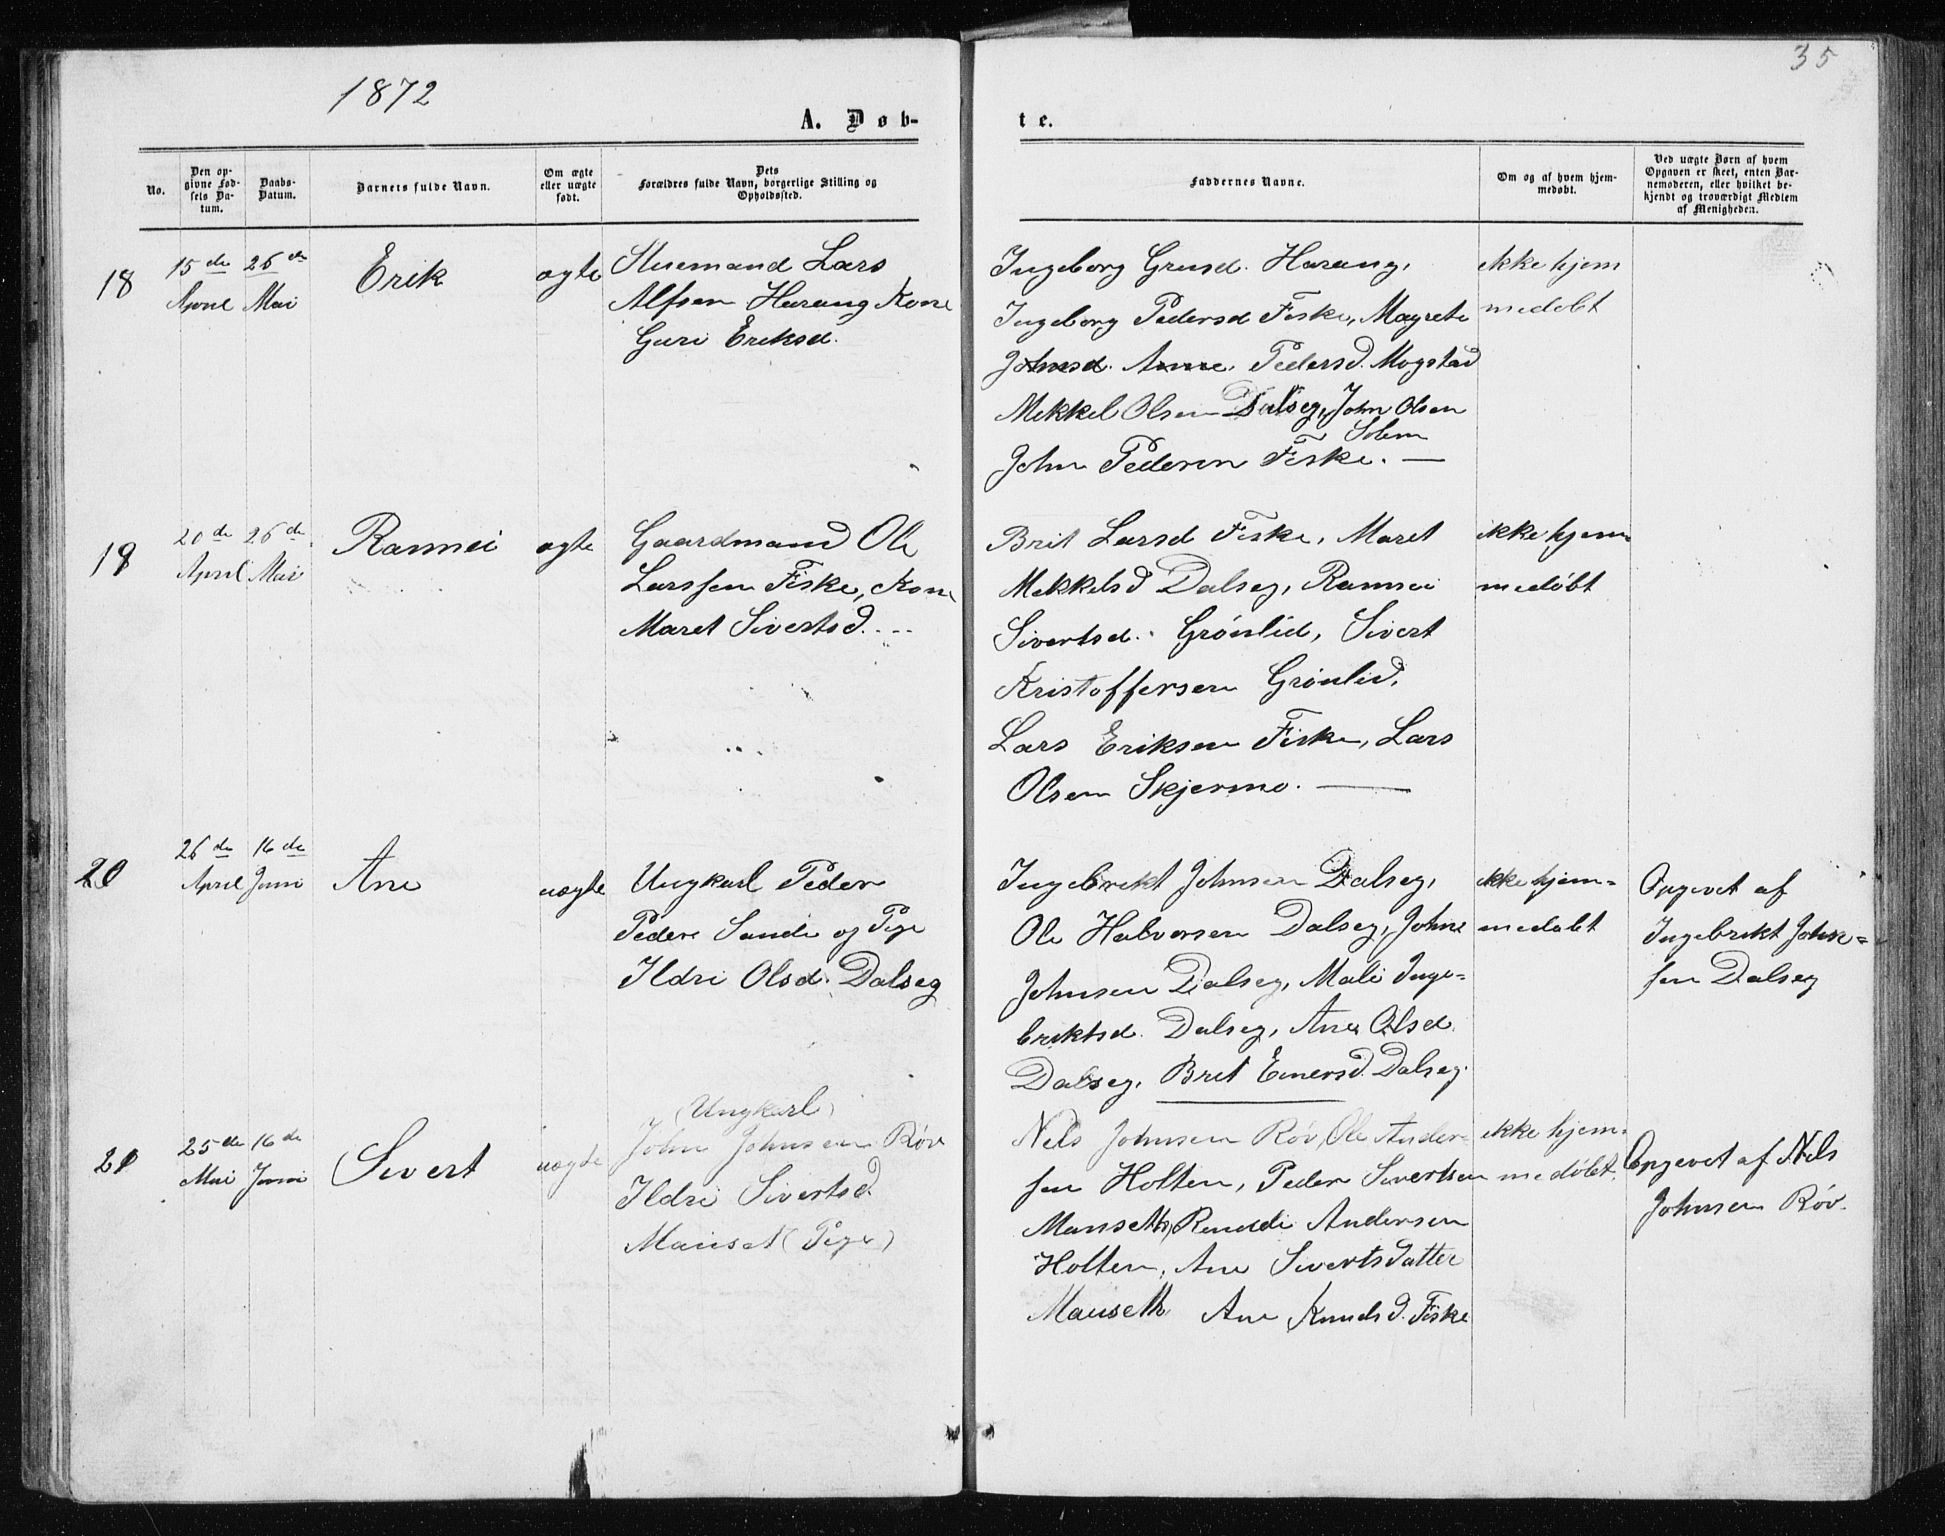 1872
35
A. Døb-
te.
No.
Den op-
givne Fød-
sels Da-
tum.
Daabs-
Datum.
Barnets fulde Navn.
Om ægte
eller uægte
født.
Dets
Forældres fulde Navn, borgerlige Stilling og
Opholdssted.
Faddernes Navne.
Om og af hvem hjem-
medøbt.
Ved uægte Børn af hvem
Opgaven er skeet, enten Bar-
nemoderen, eller hvilket be-
kjendt og troværdigt Medlem
af Menigheden.
18
15de
April
26de
Mai
Erik
ægte
Husmand Lars
Alfsen Harang Kone
Guri Eriksd.
Ingeborg Grusd. Harang,
Ingeborg Pedersd Fiske, Magrete
Johnsd. Anne. Pedersd. Mogstad
Mekkel Olsen Dalseg, John Olsen
Solem
John Pedersen Fiske. —
ikke hjem
medøbt
19
20de
April
26de
Mai
Rannei
ægte
Gaardmand Ole
Larssen Fiske, Kone
Maret Sivertsd.
Brit Larsd Fiske, Maret
Mekkelsd Dalseg, Rannei
Sivertsd. Grönlid, Sivert
Kristoffersen Grönlid,
Lars Eriksen Fiske, Lars
Olsen Skjermo. —
ikke hjem-
medøbt
20
26de
April
16de
Juni
Ane
uægte
Ungkarl Peder
Peders Sande og Pige
Ildri Olsd. Dalseg
Ingebrikt Johnsen Dalseg,
Ole Halvorsen Dalseg, John
Johnsen Dalseg, Mali Inge-
briktsd. Dalseg, Ane Olsd.
Dalseg, Brit Einersd. Dalseg.
ikke hjem-
medøbt
Opgevet af
Ingebrikt John-
sen Dalseg
21
25de
Mai
16de
Juni
Sivert
uægte
(Ungkarl)
John Johnsen Røv
Ildri Sivertsd.
Mauset (Pige)
Nels Johnsen Røv, Ole Ander-
sen Holten, Peder Sivertsen
Mauseth, Randdi Andersen
Holten, Ane Sivertsdatter
Mauseth Ane Knudsd. Fiske
ikke hjem-
medøbt.
Opgevet af Nels
Johnsen Røv.